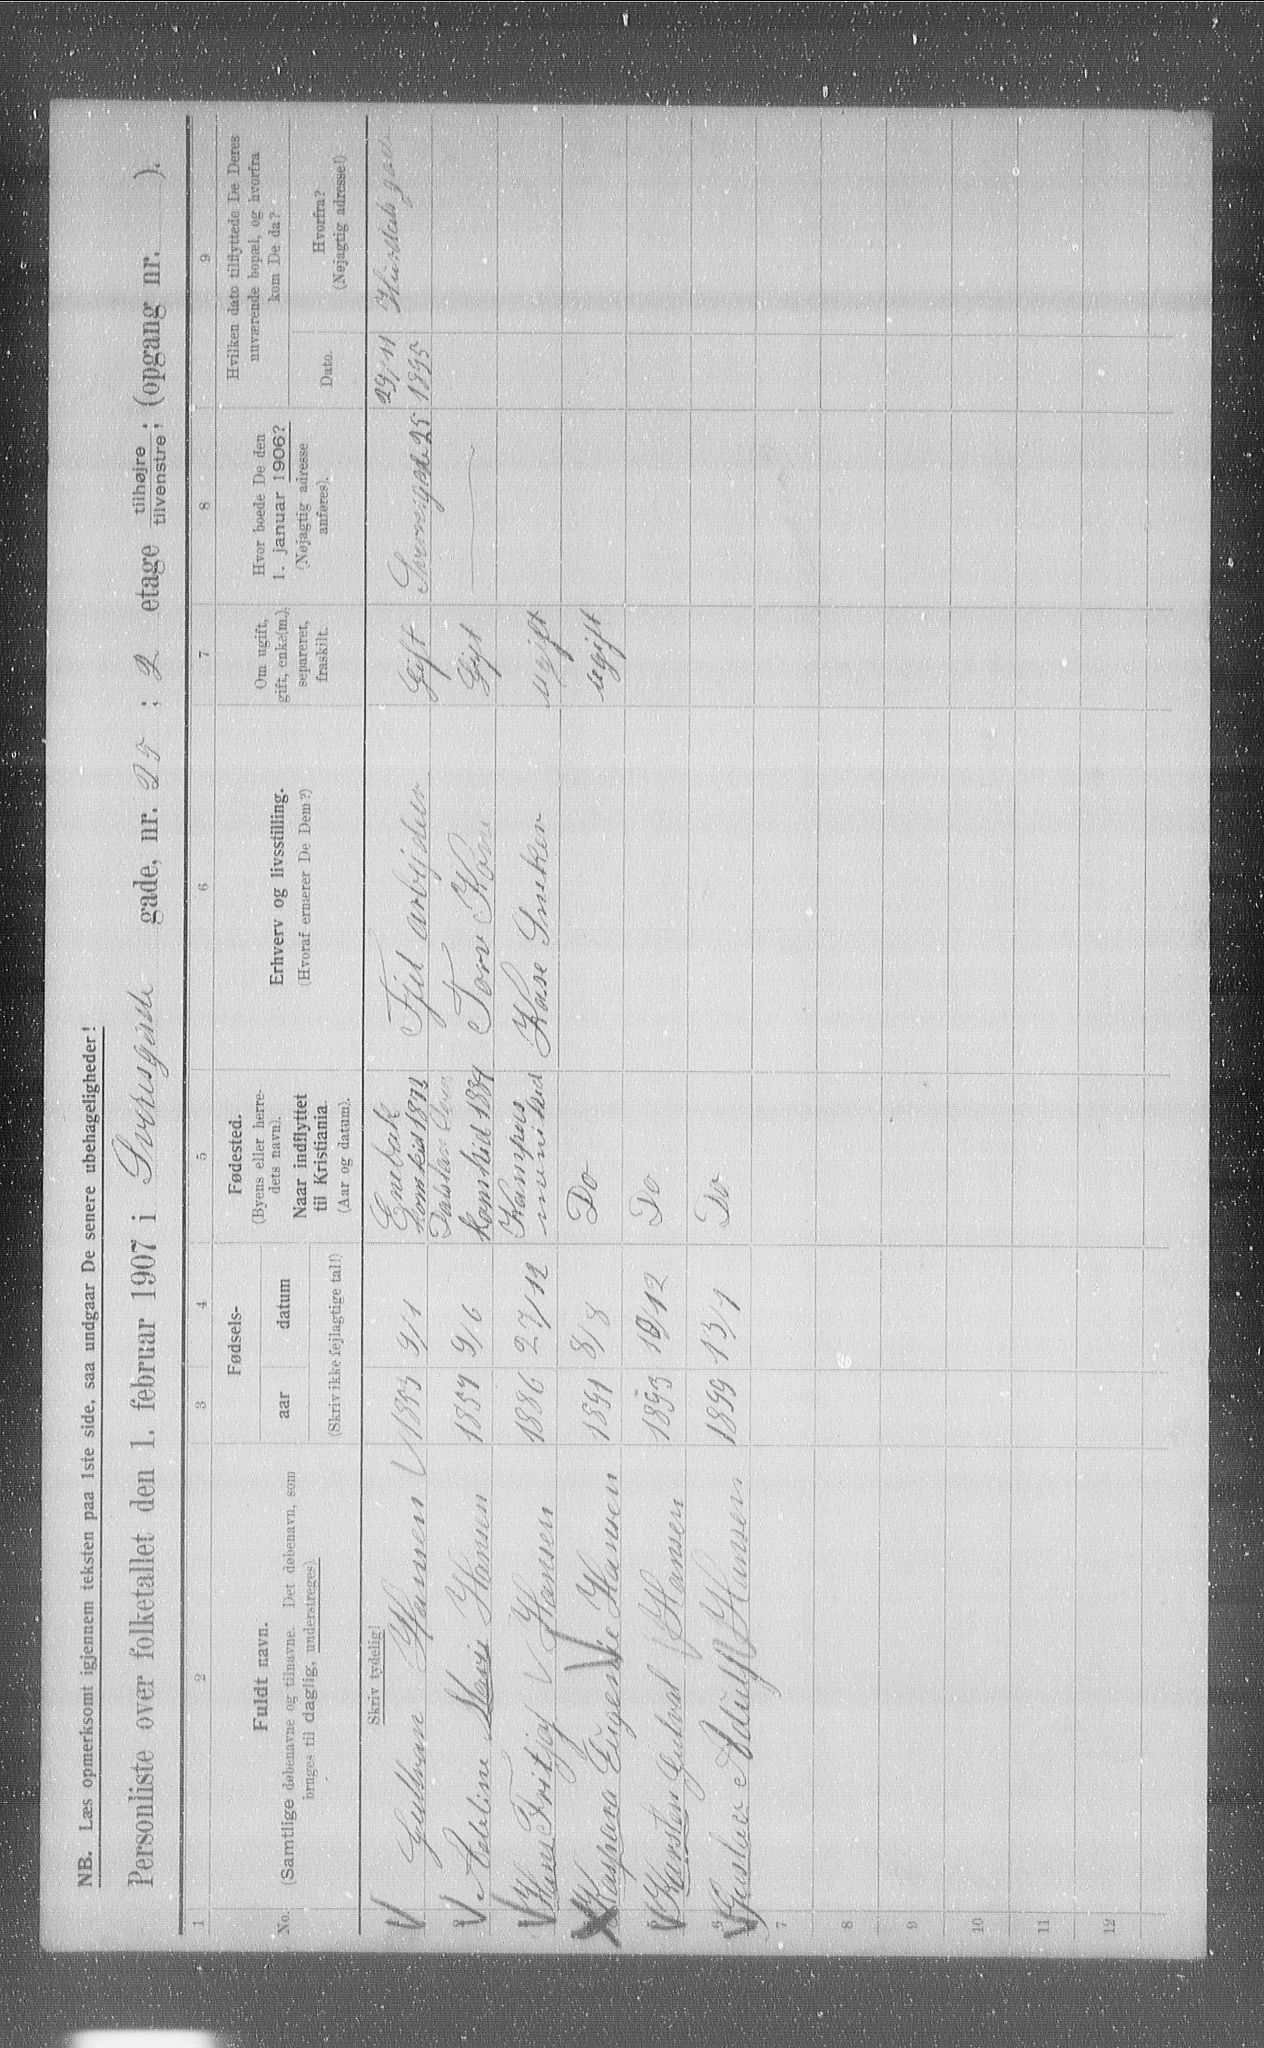 NB. Læs opmerksomt igjennem teksten paa 1ste side, saa undgaar De senere ubehageligheder!
Personliste over folketallet den 1. februar 1907 i Sverresgade gade, nr. 25 ; 2 etage tilhøjre / tilvenstre ; (opgang nr. ).
1 2 3 4 5 6 7 8 9
No. Fuldt navn. (Samtlige døbenavne og tilnavne. Det døbenavn, som bruges til daglig, understreges).
Fødsels- aar datum (Skriv ikke fejlagtige tal!)
Fødested. (Byens eller herredets navn). Naar indflyttet til Kristiania. (Aar og datum).
Erhverv og livsstilling. (Hvoraf ernærer De Dem?)
Om ugift, gift, enke(m.), separeret, fraskilt.
Hvor boede De den 1. januar 1906? (Nøjagtig adresse anføres).
Hvilken dato tilflyttede De Deres nuværende bopæl, og hvorfra kom De da?
Dato. Hvorfra? (Nøjagtig adresse!)
Skriv tydelig!
Hansen 1853 9/1 Enebak Gift 25 29/11 1895
Adeline Marie Hansen 1857 9/6 Kone Gift
Hans Fritjof Hansen 1886 27/12 Kampens ugift
Kaspara Eugenie Hansen 1891 8/8 Do ugift
5 Karsten Hansen 1893 /12 Do
6 Gustav Adulf Hansen 1899 13/1 Do
7
8
9
10
11
12